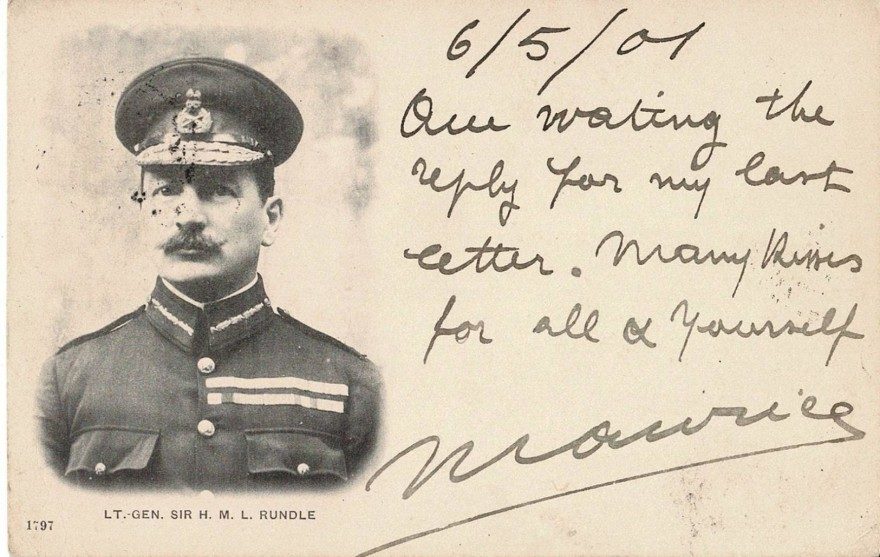 6/5/01
Am wating the
reply for my last
letter. Many Kisses
for all & Yourself
Maurice
LT.-GEN. SIR H. M. L. RUNDLE
1797